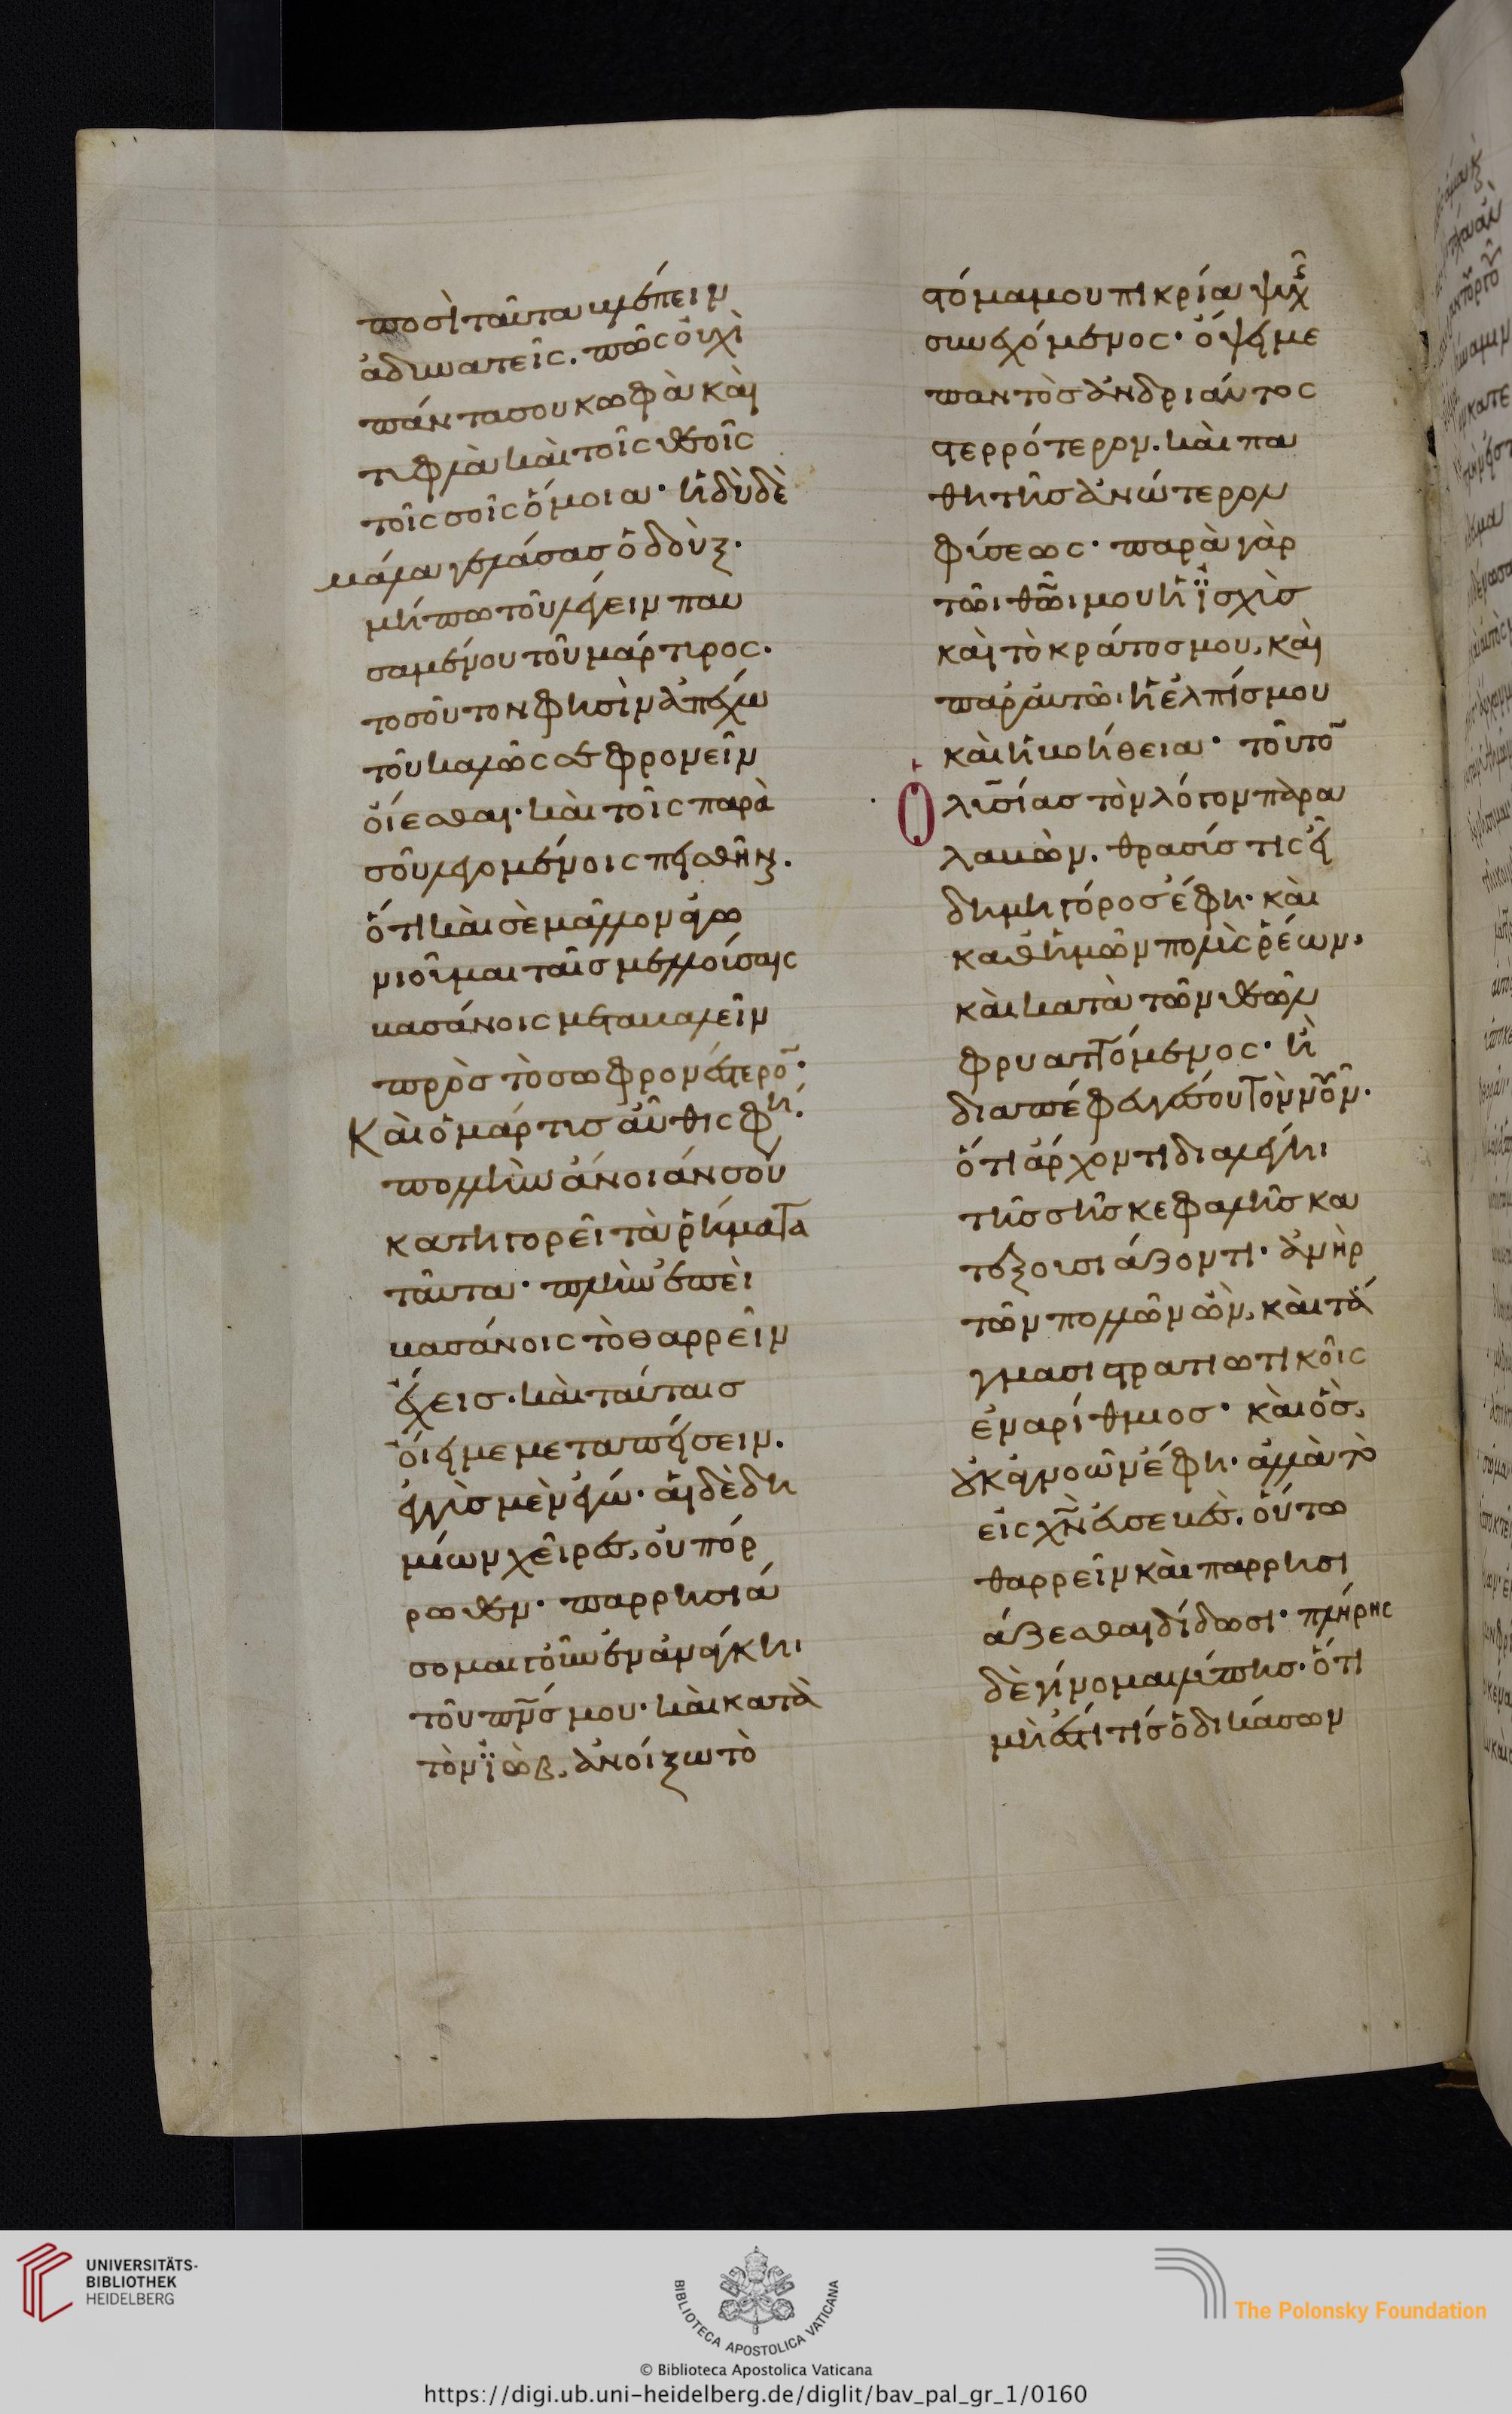 ποσὶ ταῦτα βλέπειν
ἀδυνατεῖς. πῶς οὐχὶ
πάντα σου κωφὰ καὶ
τυφλὰ καὶ τοῖς θεοῖς
τοῖς σοῖς ὅμοια· ἡδὺ δὲ
μάλα γελάσας ὁ δοὺξ.
μήπω τοῦ λέγειν παυ
σαμένου τοῦ μάρτυρος.
τοσοῦτον φησὶν ἀπέχω
τοῦ καλῶς σε φρονεῖν
οἴεσθαι· καὶ τοῖς παρὰ
σοῦ λεγομένοις πεισθῆναι.
ὅτι καὶ σὲ μᾶλλον ἀγω
νιοῦμαι ταῖς μελλούσαις
βασάνοις μεταβαλεῖν
πρὸς τὸ σωφρονέστερον·
Καὶ ὁ μάρτυς αὖθις φη.
πολλὴν ἄνοιάν σου
κατηγορεῖ τὰ ῥήματα
ταῦτα· πλὴν ἐπεὶ
βασάνοις τὸ θαρρεῖν
ἔχεις. καὶ ταύταις
οἴει με μεταπείσειν.
ἐγγὺς μὲν ἐγώ· αἱ δὲ δη
μίων χεῖρες, οὐ πόρ
ρωθεν· παρρησιά
σομαι γοῦν ἐν ἀνάγκηι
τοῦ πνς μου· καὶ κατὰ
τὸν ϊὼβ, ἀνοίξω τὸ
στόμα μου πικρία ψυχῆς
συνεχόμενος· ὄψει με
παντὸς ἀνδριάντος
στερρότερον. καὶ πα
θητῆς ἀνώτερον
φύσεως· παρὰ γὰρ
τῶι θῶι μου ἡ ϊσχὺς
καὶ τὸ κράτος μου, καὶ
παρ αὐτῶ ἡ ἐλπίς μου
καὶ ἡ βοήθεια· τοῦτον
Ὁ λυσίας τὸν λόγον παρα
λαβὼν. θρασύς τις εἶ
δημηγόρος ἔφη· καὶ
καθ ἡμῶν πολὺς ῥέων.
καὶ κατὰ τῶν θεῶν
φρυαττόμενος· ἢ
διαπέφευγέ σου τὸν νοῦν.
ὅτι ἄρχοντι διαλέγηι
τῆς σῆς κεφαλῆς κα
τεξουσιάζοντι· ἀνὴρ
τῶν πολλῶν ὢν, καὶ τά
γμασι στρατιωτικοῖς
ἐναρίθμιος· καὶ ὃς,
οὐκ ἀγνοῶν ἔφη· ἀλλὰ τὸ
εἰς χν εὐσεβὲς, οὕτω
θαρρεῖν καὶ παρρησι
άζεσθαι δίδωσι· πλήρης
δὲ γίνομαι λύπης· ὅτι
μὴ ἔστι τίς ὁ δικάσων
UNIVERSITÄTS-
BIBLIOTHEK
HEIDELBERG
BIBLIOTECA APOSTOLICA VATICANA
The Polonsky Foundation
© Biblioteca Apostolica Vaticana
https://digi.ub.uni-heidelberg.de/diglit/bav_pal_gr_1/0160